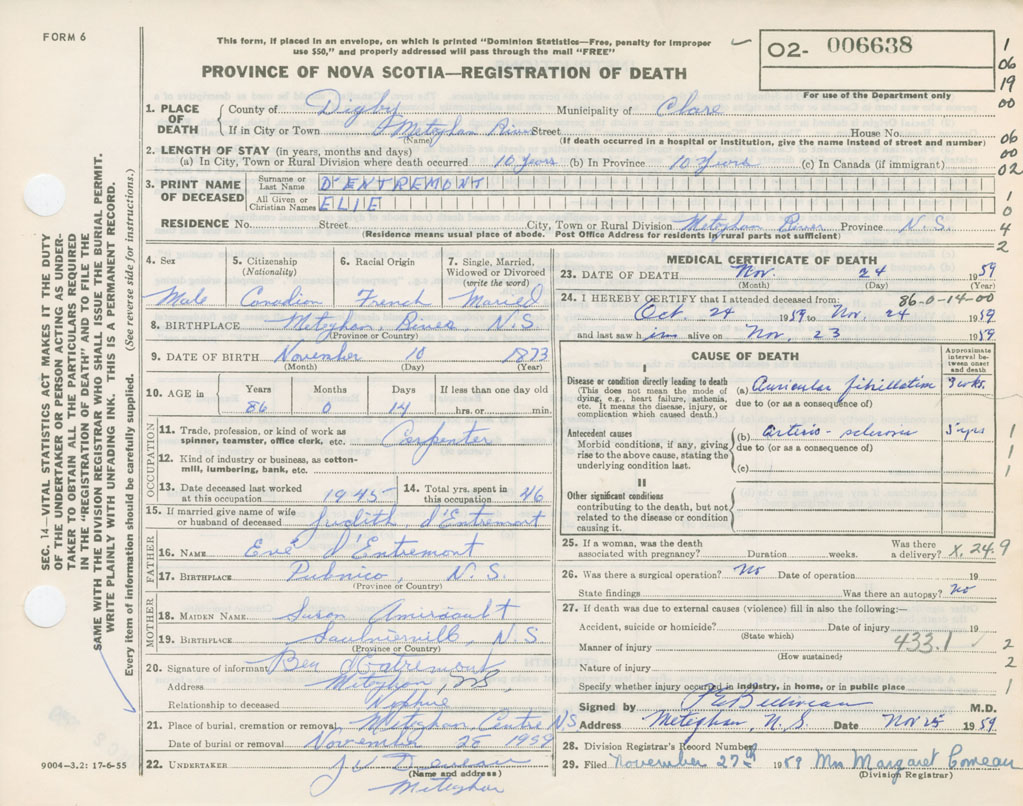 FORM 6
This form, if placed in an envelope, on which is printed "Dominion Statistics—Free, penalty for improper
use $50," and properly addressed will pass through the mail "FREE"
PROVINCE OF NOVA SCOTIA—REGISTRATION OF DEATH
02- 006638
For use of the Department only
1
06
19
00
06
00
02
1
0
4
2
SEC. 14—VITAL STATISTICS ACT MAKES IT THE DUTY
OF THE UNDERTAKER OR PERSON ACTING AS UNDER-
TAKER TO OBTAIN ALL THE PARTICULARS REQUIRED
IN THE "REGISTRATION OF DEATH" AND TO FILE THE
SAME WITH THE DIVISION REGISTRAR WHO SHALL ISSUE THE BURIAL PERMIT.
WRITE PLAINLY WITH UNFADING INK. THIS IS A PERMANENT RECORD.
Every item of information should be carefully supplied. (See reverse side for instructions.)
1. PLACE OF DEATH County of Digby Municipality of Clare
If in City or Town Meteghan River Street House No.
(Name) (If death occurred in a hospital or institution, give the name instead of street and number)
2. LENGTH OF STAY (in years, months and days)
(a) In City, Town or Rural Division where death occurred 10 Years (b) In Province 10 Years (c) In Canada (if immigrant)
3. PRINT NAME OF DECEASED Surname or Last Name D'ENTREMONT
All Given or Christian Names ELIE
RESIDENCE No. Street City, Town or Rural Division Meteghan River Province N.S.
(Residence means usual place of abode. Post Office Address for residents in rural parts not sufficient)
4. Sex Male
5. Citizenship (Nationality) Canadian
6. Racial Origin French
7. Single, Married, Widowed or Divorced (write the word) Married
8. BIRTHPLACE Meteghan, River, N.S
(Province or Country)
9. DATE OF BIRTH November 10 1873
(Month) (Day) (Year)
10. AGE in Years 86 Months 0 Days 14 If less than one day old hrs. or min.
OCCUPATION
11. Trade, profession, or kind of work as spinner, teamster, office clerk, etc. Carpenter
12. Kind of industry or business, as cotton-mill, lumbering, bank, etc.
13. Date deceased last worked at this occupation 1945
14. Total yrs. spent in this occupation 46
15. If married give name of wife or husband of deceased Judith d'Entremont
FATHER
16. NAME d'Entremont
17. BIRTHPLACE Pubnico, N.S.
(Province or Country)
MOTHER
18. MAIDEN NAME Susan Amirault
19. BIRTHPLACE Saulnierville, N.S
(Province or Country)
20. Signature of informant Ben d'Entremont
Address Meteghan, NS
Relationship to deceased Nephue
21. Place of burial, cremation or removal Meteghan Centre NS
Date of burial or removal November 26 1959
22. UNDERTAKER
(Name and address)
Meteghan
9004-3.2: 17-6-55
MEDICAL CERTIFICATE OF DEATH
23. DATE OF DEATH Nov. 24 1959
(Month) (Day) (Year)
24. I HEREBY CERTIFY that I attended deceased from: 86-0-14-00
Oct. 24 1959 to Nov. 24 1959
and last saw him alive on Nov. 23 1959
CAUSE OF DEATH
Approximate interval between onset and death
I
Disease or condition directly leading to death
(This does not mean the mode of dying, e.g., heart failure, asthenia, etc. It means the disease, injury, or complication which caused death.)
(a) Auricular fibrillation 3 wks.
due to (or as a consequence of)
Antecedent causes
Morbid conditions, if any, giving rise to the above cause, stating the underlying condition last.
(b) arterio-sclerosis 5 yrs
due to (or as a consequence of)
(c)
1
1
1
II
Other significant conditions
contributing to the death, but not related to the disease or condition causing it.
25. If a woman, was the death associated with pregnancy? Duration weeks. Was there a delivery? X.24.9
26. Was there a surgical operation? No Date of operation 19
State findings Was there an autopsy? No
27. If death was due to external causes (violence) fill in also the following:—
Accident, suicide or homicide? Date of injury 19
(State which)
433.1
Manner of injury
(How sustained)
Nature of injury
Specify whether injury occurred in industry, in home, or in public place
2
2
1
Signed by P E Belliveau M.D.
Address Meteghan, N.S. Date Nov 25 1959
28. Division Registrar's Record Number
29. Filed November 27th 1959 Mrs Margaret Comeau
(Division Registrar)